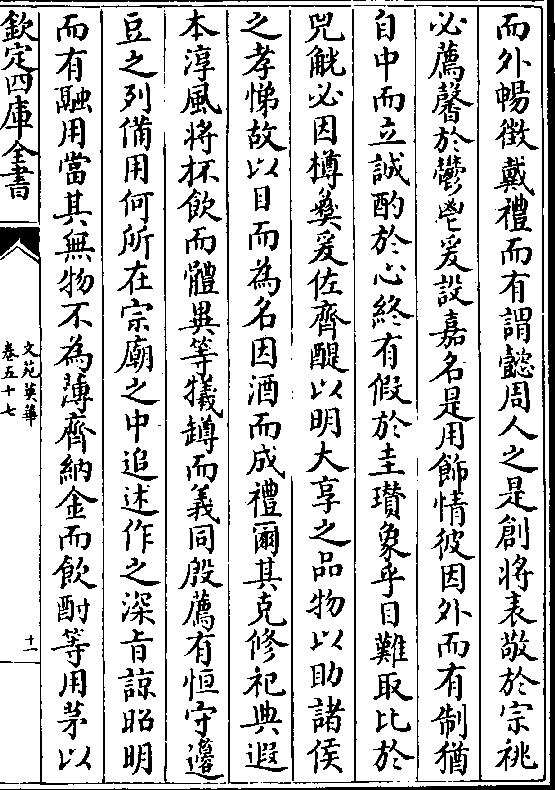 而外暢徴戴禮而有謂懿周人之是創將表敬於宗祧
必薦馨於鬱鬯爰設嘉名是用飾情彼因外而有制猶
自中而立誠酌於心終有假於圭瓚象乎目難取比於
兕觥必因樽彝爰佐齊醍以明大享之品物以助諸侯
之孝悌故以目而為名因酒而成禮爾其克修祀典遐
本淳風將抔飲而體異等犧罇而義同殷薦有恒守邊
豆之列備用何所在宗廟之中追述作之深旨諒昭明
而有融用當其無物不為薄齊納金而飲酎等用茅以
欽定四庫全書
文苑英華
卷五十七
十一